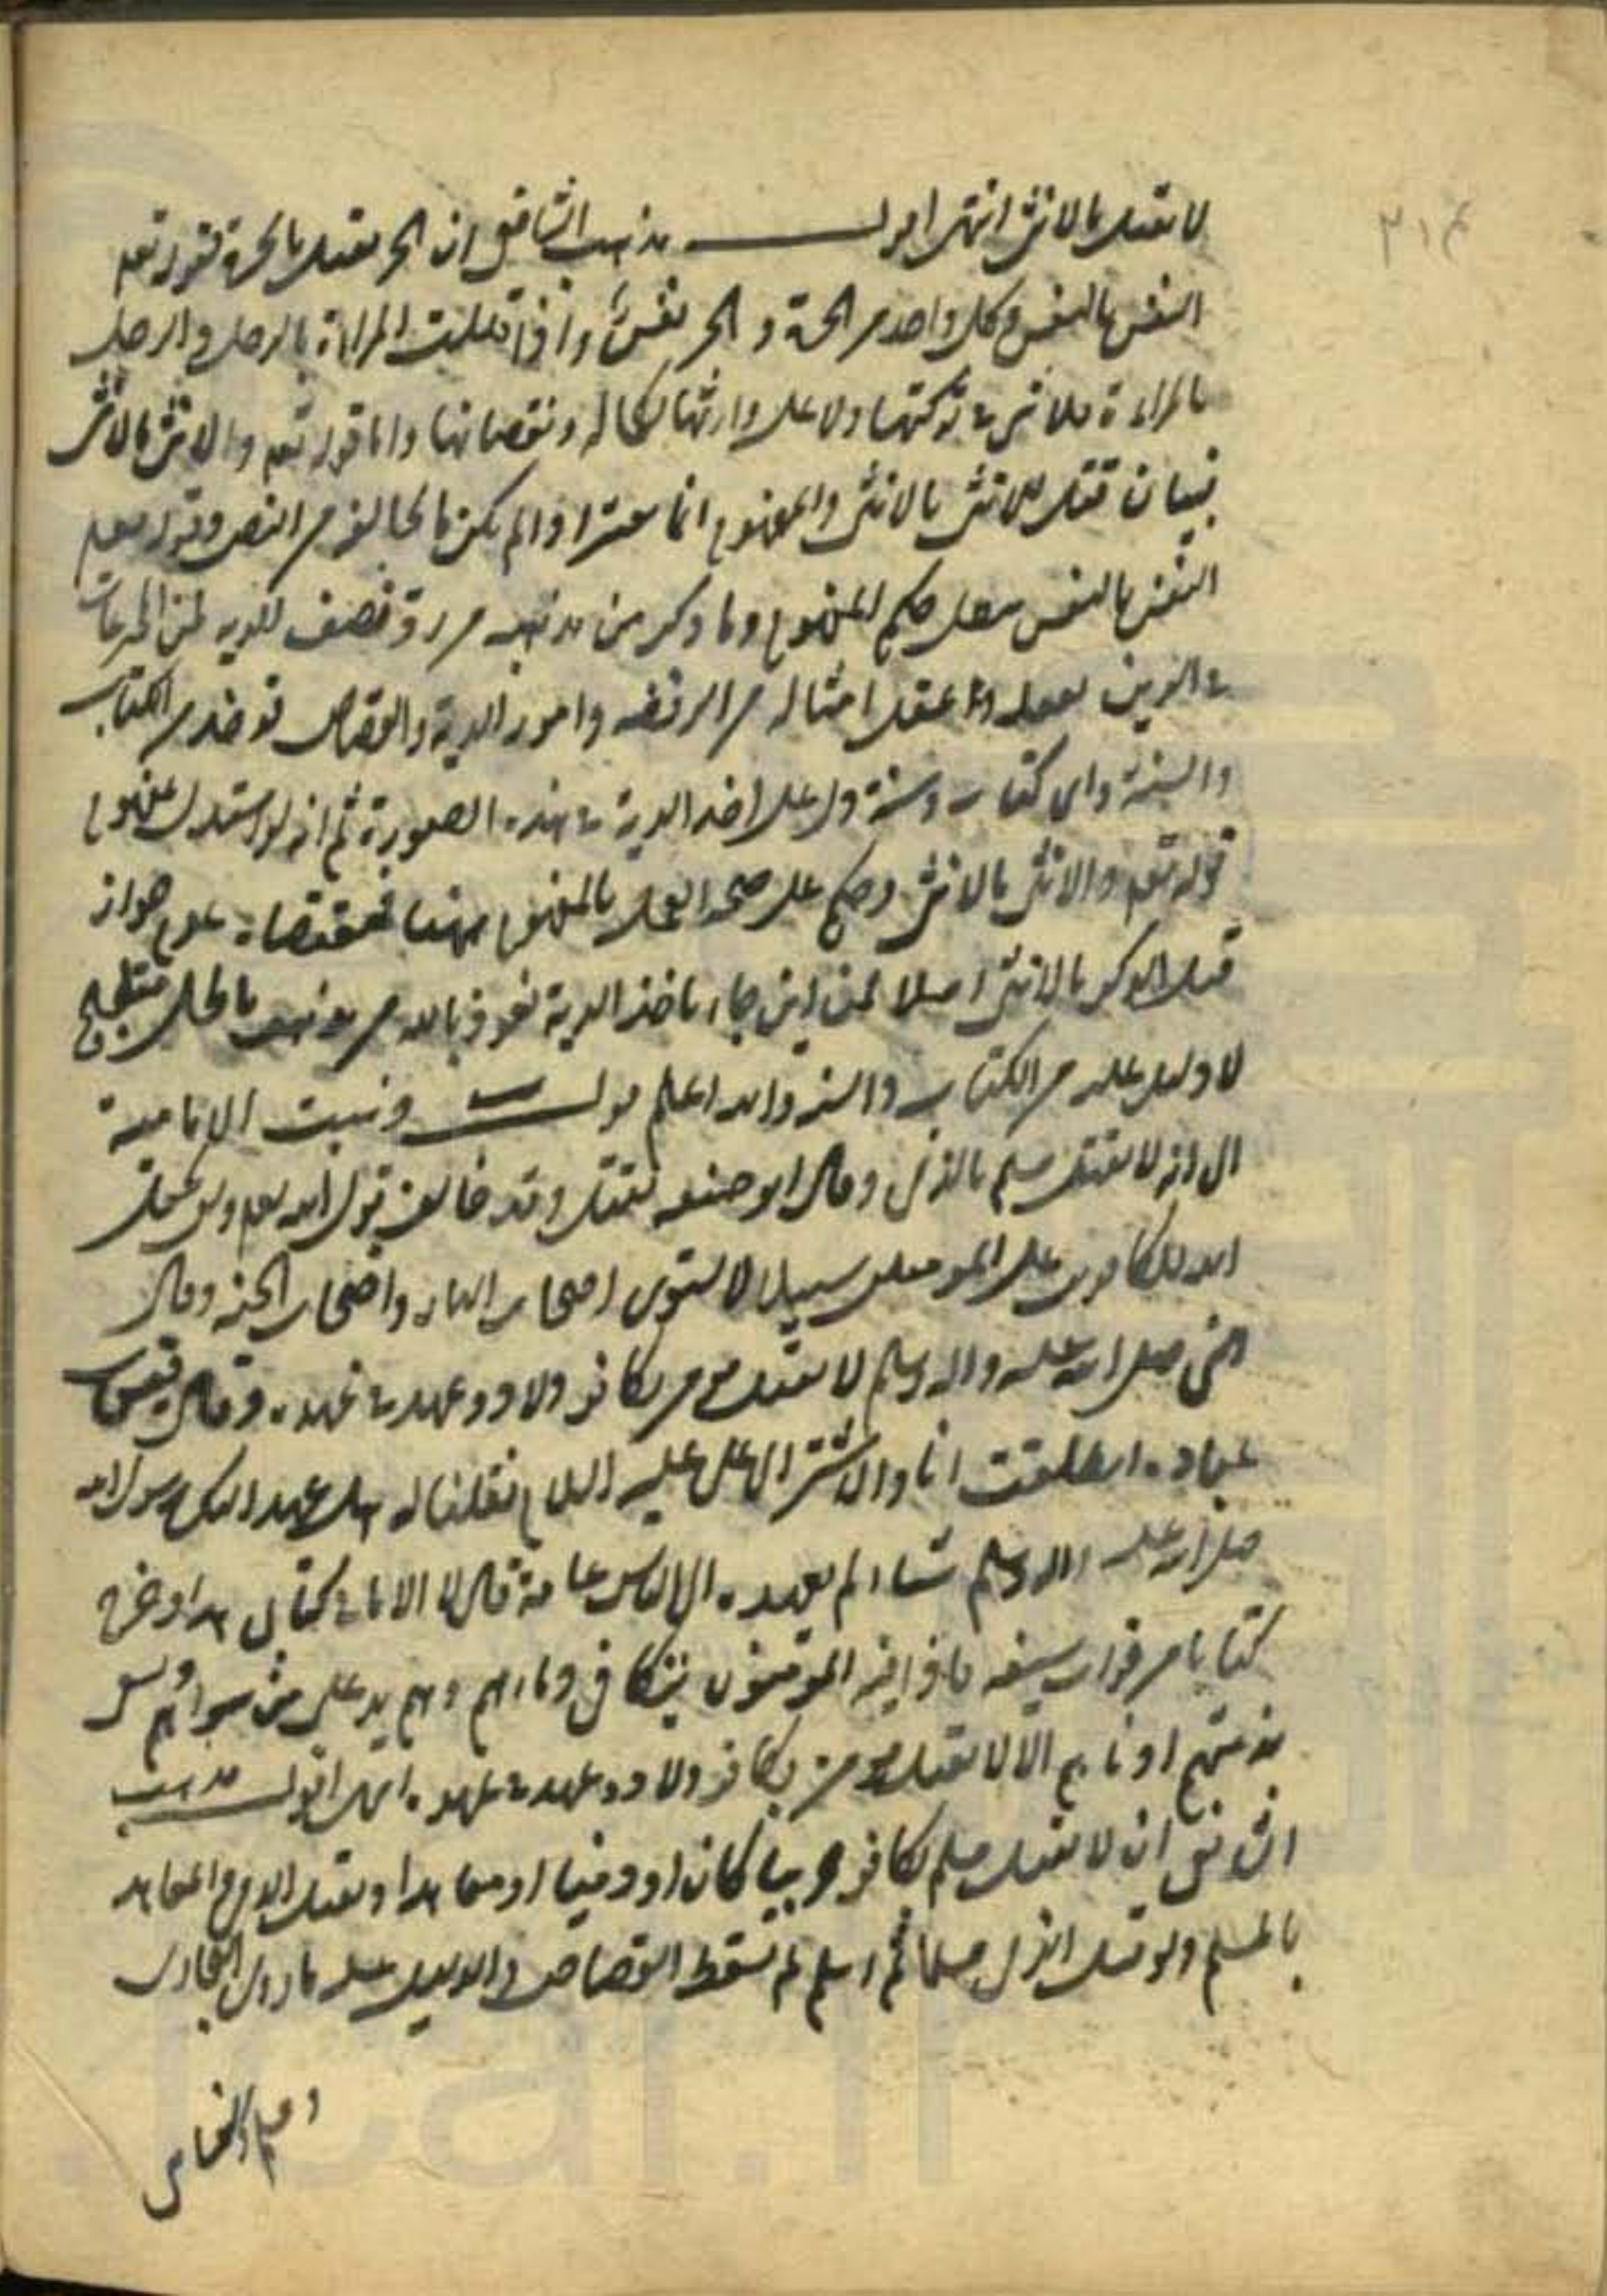 ٢١٤
لا یقتل بالانثی انتهی اقول مذهب الشافعی ان الحر یقتل بالحرة لقوله تعم
النفس بالنفس وکل واحد من الحرة و الحر نفس و اذا قتلت المراءة بالرجل و الرجل
بالمراءة فلا شیء فی ترکتها ولا علی وارثها لکماله ونقصانها واما قوله تعم والانثی بالانثی
فبیان قتل الانثی بالانثی والمفهوم انما یعتبر اذا لم یکن مخالف من النص وقوله تعم
النفس بالنفس یبطل حکم المفهوم وما ذکر من مذهبه من رد نصف الدیة فمن المخترعات
فی الدین یعمل بها عقل امثاله من الرفضه وامور الدیة والقصاص توخذ من الکتاب
والسنة وای کتاب وسنة دل علی اخذ الدیة فی هذه الصورة ثم انه لو استدل بمفهوم
قوله تعم والانثی بالانثی وحکم علی صحة العمل بالمفهوم هیهنا فمقتضاه عدم جواز
قتل الذکر بالانثی اصلا فمن این جاء باخذ الدیة نعوذ بالله من مذهب باطل
لا دلیل علیه من الکتاب والسنه والله اعلم قوله وذهبت الامامیة
الی انه لا یقتل مسلم بالذمی وقال ابو حنیفه یقتل وقد خالف قول الله تعم ولن یجعل
الله للکافرین علی المومنین سبیلا لا یستوی اصحاب النار واصحاب الجنه وقال
النبی صلی الله علیه واله وسلم لا یقتل مومن بکافر ولا ذو عهد فی عهده وقال قیس بن
عباده انطلقت انا والاشتر الی علی علیه السلام فقلنا له هل عهد الیک رسول الله
صلی الله علیه واله وسلم شیئا لم یعهده الی الناس عامة قال لا الا ما فی کتابی هذا وخرج
کتابا من قراب سیفه فاذا فیه المومنون یتکافی دماءهم وهم ید علی من سواهم ویسعی
بذمتهم ادناهم الا لا یقتل مومن بکافر ولا ذو عهد فی عهده انتهی اقول مذهب
الشافعی ان لا یقتل مسلم بکافر حربیا کان او ذمیا او معاهدا ویقتل الذمی والمعاهد
بالمسلم ولو قتل الذمی مسلما ثم اسلم لم یسقط القصاص والدلیل علیه ما روی البخاری